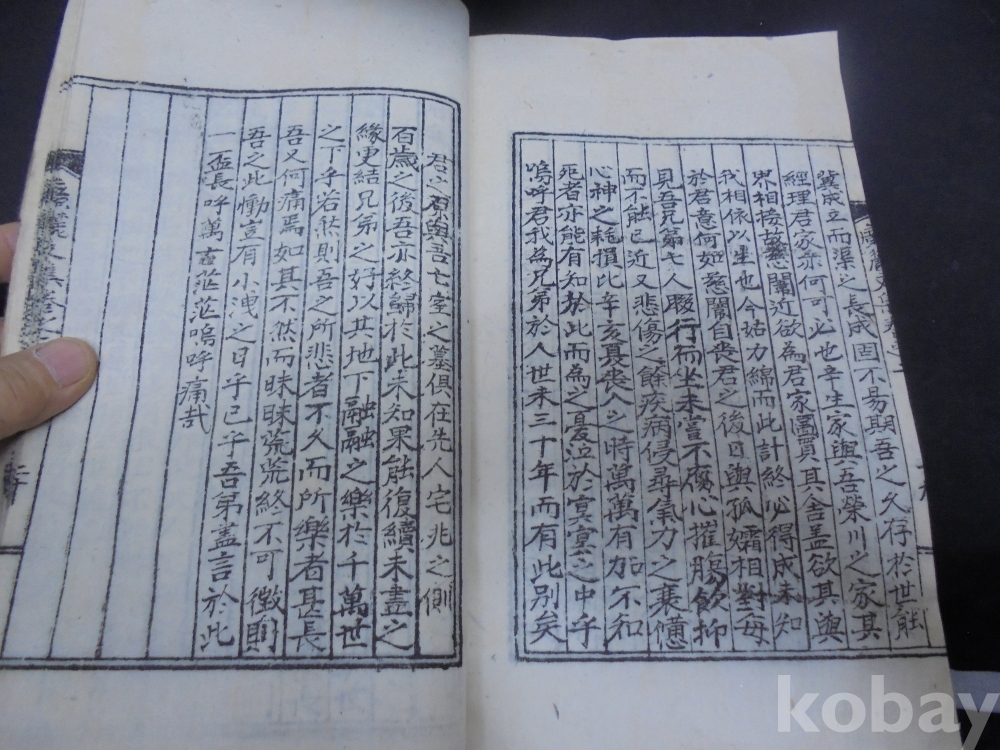 冀成立而渠之長成固不易期吾之久存於世能
經理君家亦何可必也辛生家與吾榮川之家其
界相接故慈闈近欲為君家圖買其舍盖欲其與
我相依以生也今姑力綿而此計終必得成未知
於君意何如慈闈自喪君之後日與孤孀相對每
見吾兄弟七人聯行而坐未嘗不腐心摧腸飲抑
而不能已近又悲傷之餘疾病侵尋氣力之衰憊
心神之耗損比辛亥喪人之時萬萬有加不知
死者亦能有知於此而為之憂泣於冥冥之中乎
嗚呼君我為兄弟於人世未三十年而有此別矣
君之與吾亡室之墓俱在先人宅兆之側
百歲之後吾亦終歸於此未知果能復續未盡之
緣更結兄弟之好以其地下融融之樂於千萬世
之下乎若然則吾之所悲者不久而所樂者甚長
吾又何痛焉如其不然而昧昧荒荒終不可徵則
吾之此慟豈有小洩之日乎已乎吾第盡言於此
一盃長呼萬古茫茫嗚呼痛哉